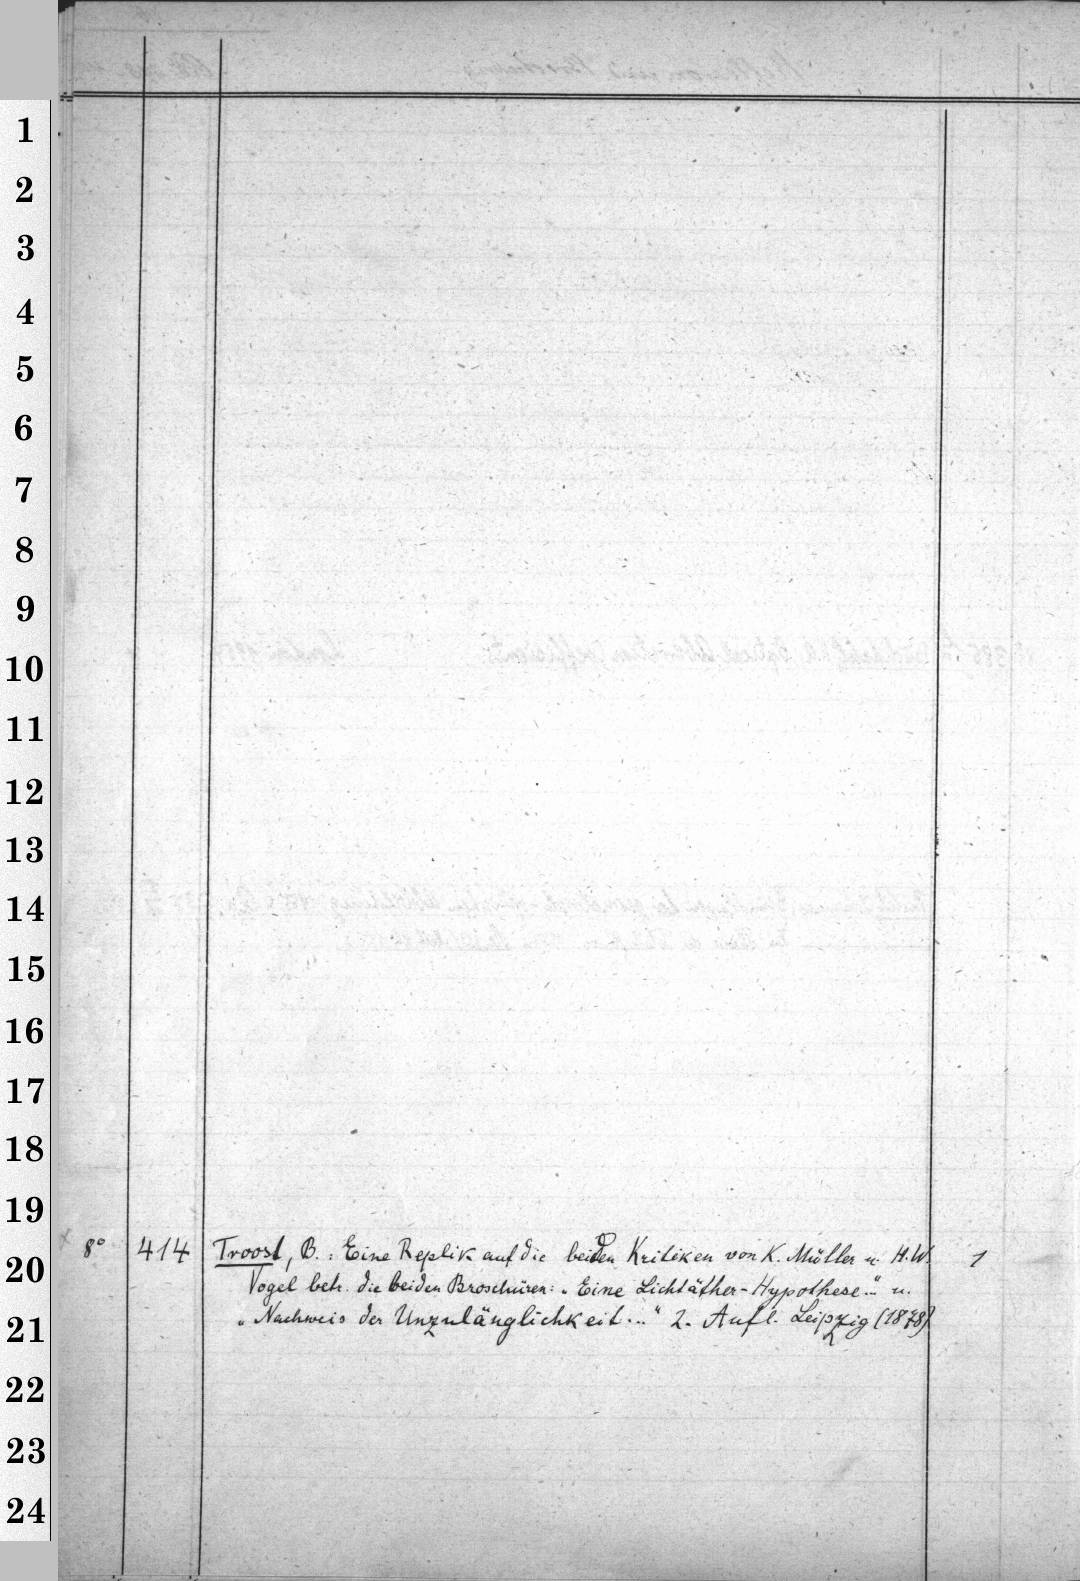 1
2
3
4
5
6
7
8
9
10
11
12
13
14
15
16
17
18
19
20
21
22
23
24
8° 414 Troost, B.: Eine Replik auf die beiden Kritiken von K. Müller u. H.W. 1
Vogel betr. die beiden Broschüren: „Eine Lichtäther-Hypothese..." u.
„Nachweis der Unzulänglichkeit..." 2. Aufl. Leipzig (1878)